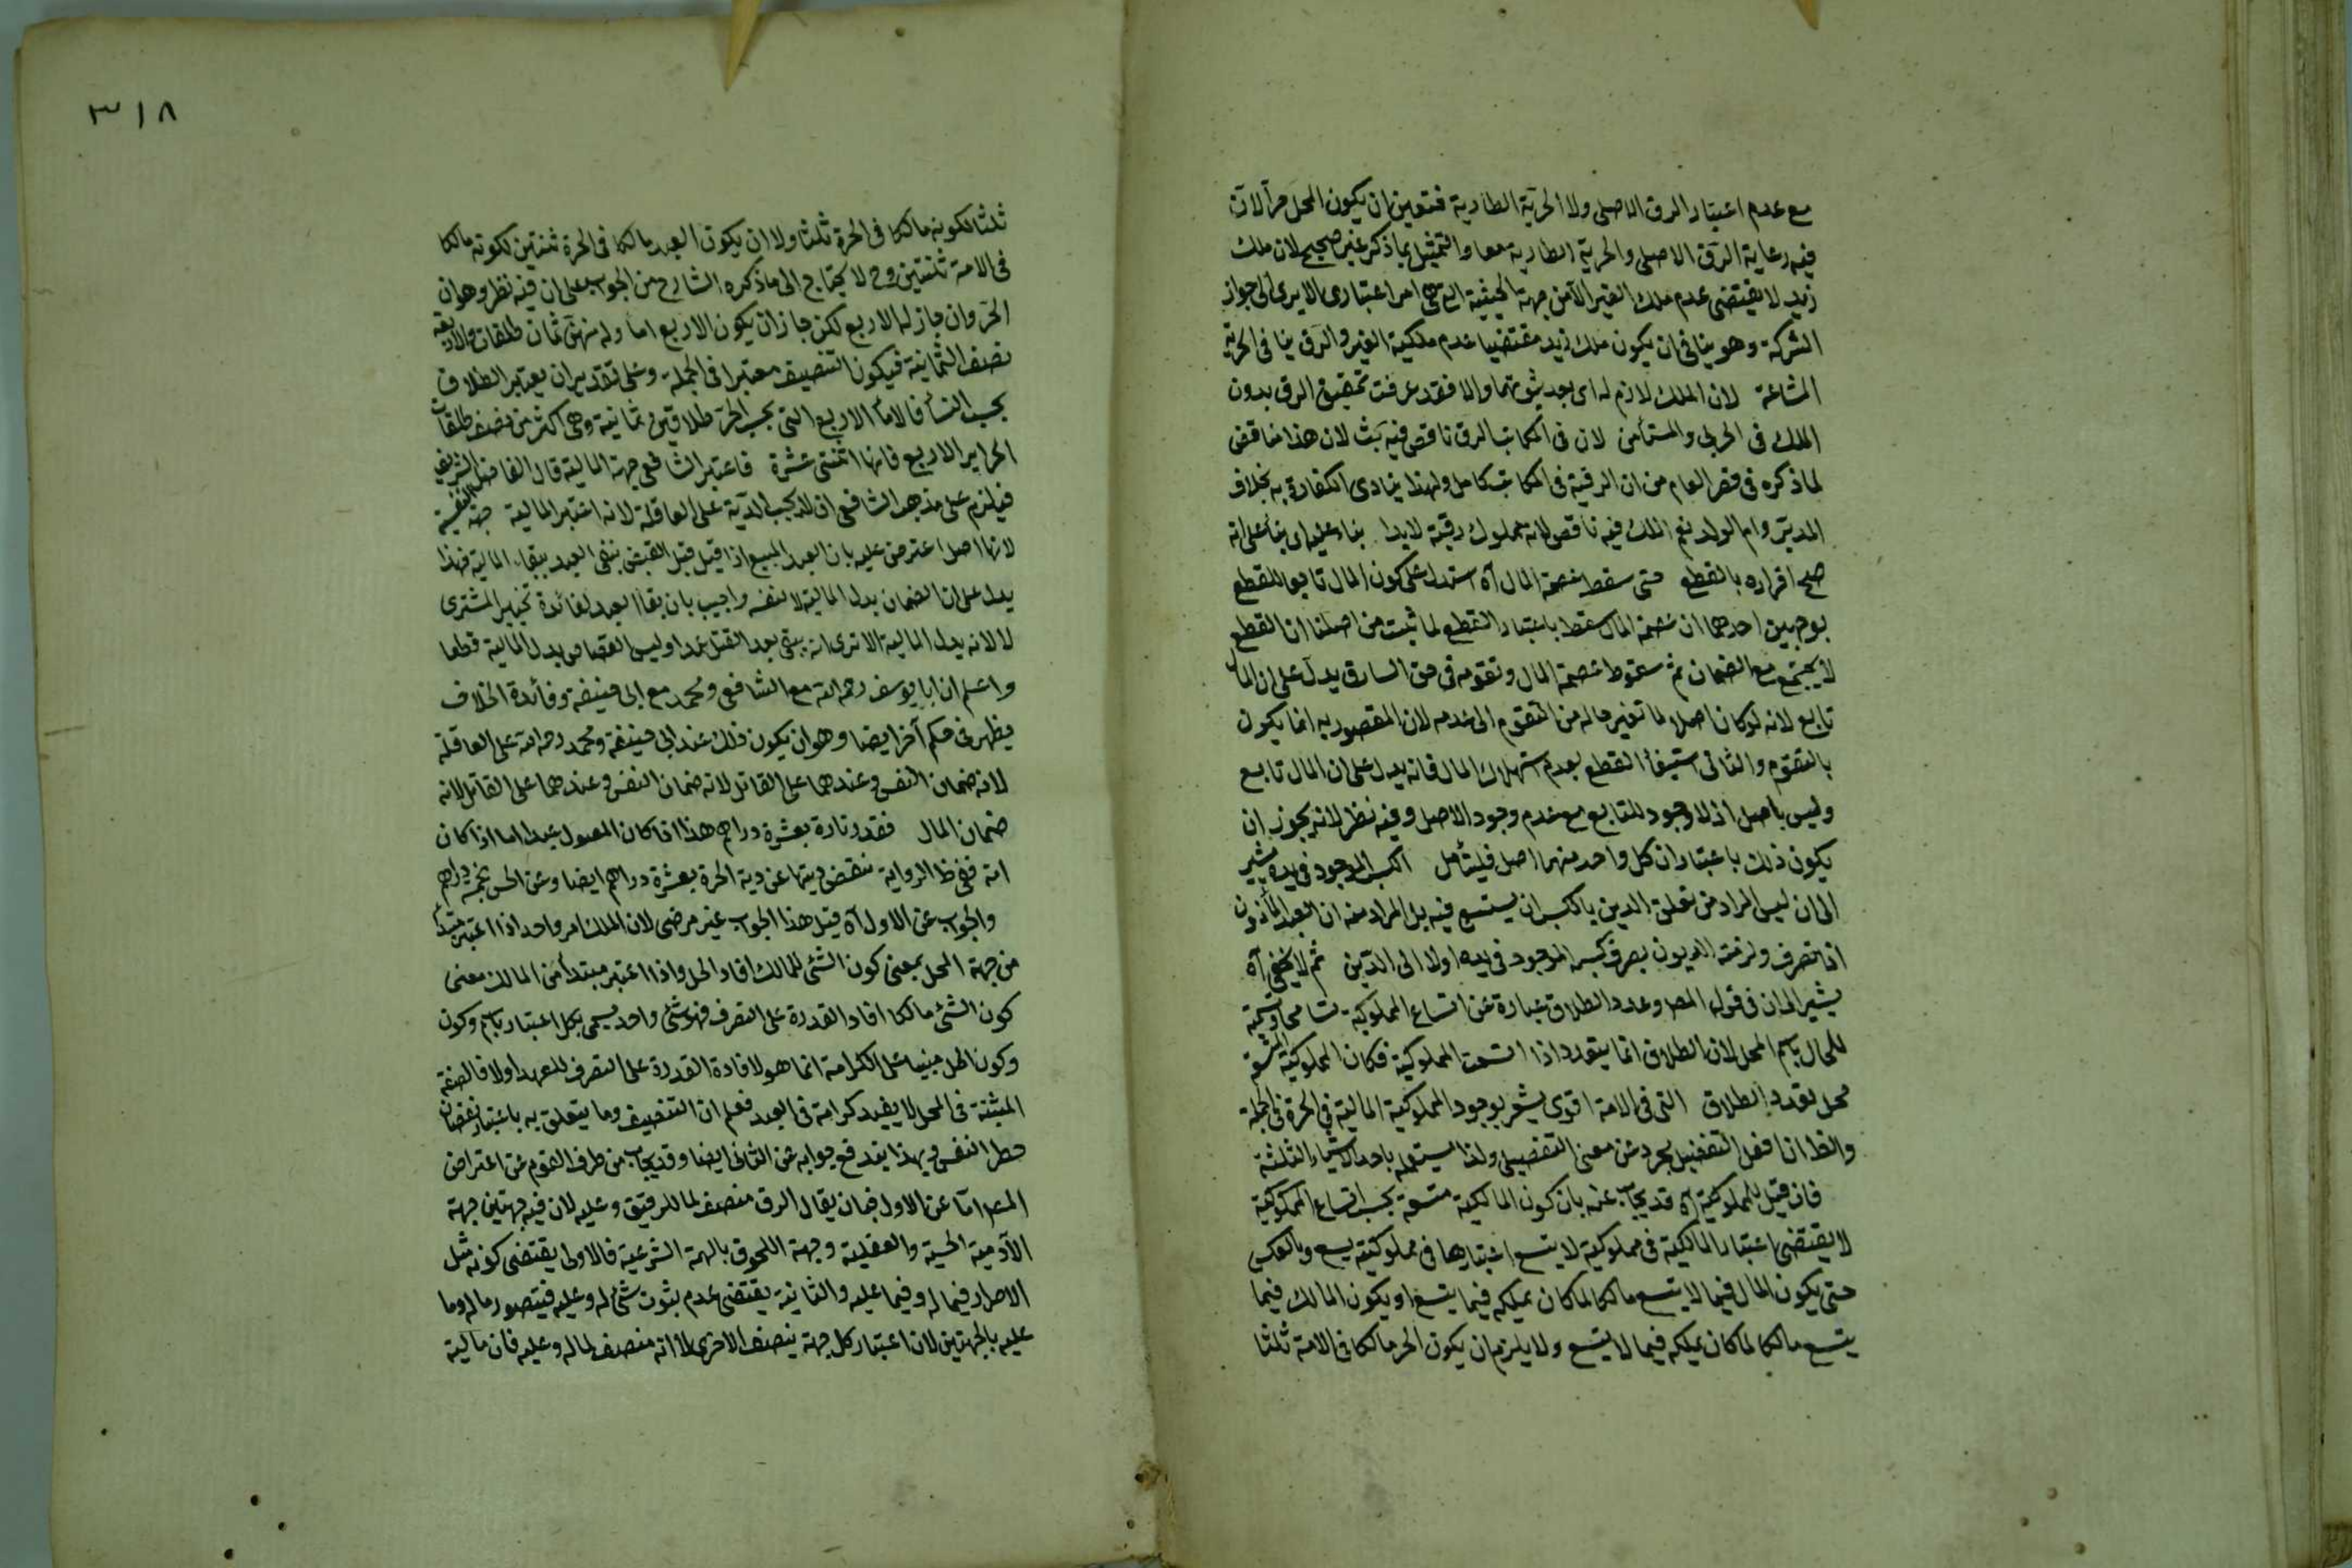 مع عدم اعتبار الرق الاصلى ولا الحرية الطارية فتعين ان يكون المحل مرآ لان
فيه رعاية الرق الاصلى والحرية الطارية معا والتمثيل بما ذكر غير صحيح لان ملك
زيد لا يقتضى عدم ملك الغير الا من جهة الحيثية التى هى امر اعتبارى الا يرى الى جواز
الشركة وهو ينافى ان يكون ملك زيد مقتضيا عدم ملكية الغير والرق ينافى الحرية
المشاعة لان الملك لازم له اى بعد ثبوتهما والا فقد عرفت تحقيق الرق بدون
الملك فى الحربى والمستأمن لان فى المكاتب الرق ناقص فيه بحث لان هذا مناقض
لما ذكره فى قصر العام من ان الرقية فى المكاتب كامل ولهذا يتادى الكفارة به بخلاف
المدبر وام الولد نعم الملك فيه ناقص لانه مملوك رقبة لا يدا بناء عليه اى بناء على انه
صح اقراره بالقطع حتى سقط عصمة المال آه استدل على كون المال تابعا للقطع
بوجهين احدهما ان عصمة المال سقط باعتبار القطع لما ثبت من اصلنا ان القطع
لا يجتمع مع الضمان ثم سقوط عصمة المال وتقومه فى حق السارق يدل على ان المال
تابع لانه لو كان اصلا لما تغير حاله من التقوم الى عدمه لان المقصود به انما يكون
بالتقوم والثانى استيفاء القطع بعد استهلاك المال فانه يدل على ان المال تابع
وليس باصل اذ لا وجود للتابع مع عدم وجود الاصل وفيه نظر لانه يجوز ان
يكون ذلك باعتبار ان كل واحد منهما اصل فليتأمل الكسب الموجود فى يده يشير
الى ان ليس المراد من تعلق الدين بالكسب ان يستسع فيه بل المراد منه ان العبد المأذون
اذا تصرف ولزمته الديون يصرف كسبه الموجود فى يده اولا الى الدين ثم لا يخفى آه
يشير الى ان فى قول المصـ وعدد الطلاق عبارة عن اتساع المملوكية تسامحا وتسمية
للحال باسم المحل لان الطلاق انما يتعدد اذا اتسعت المملوكية فكان المملوكية المتسعة
محل تعدد الطلاق التى فى الامة اقوى يشعر بوجود المملوكية المالية فى الحرة فى الجملة
والظ ان افعل التفضيل يجرد عن معنى التفضيل ولذا يستعمله باحد الاشياء الثلثة
فان قيل المملوكية آه قد يجاب عنه بان كون المالكية متسعة بحسب اتساع المملوكية
لا يقتضى اعتبار المالكية فى مملوكية لا يتسع اعتبارها فى مملوكية يسع وبالعكس
حتى يكون المال فيما لا يتسع مالكا لما كان يملكه فيما يتسع او يكون المالك فيما
يتسع مالكا لما كان يملكه فيما لا يتسع ولا يلزم ان يكون الحر مالكا فى الامة ثلثا
٣١٨
ثلثا لكونه مالكا فى الحرة ثلثا ولا ان يكون العبد مالكا فى الحرة ثنتين لكونه مالكا
فى الامة ثنتين وح لا يحتاج الى ما ذكره الشارح من الجواب على ان فيه نظر وهو ان
الحر وان جاز له الاربع لكن جاز ان يكون الاربع اماء وله منهن ثمان طلقات والاربعة
نصف الثمانية فيكون التنصيف معتبرا فى الجملة وعلى تقدير ان يعتبر الطلاق
بحسب النساء فالاماء الاربع التى بحسب الحر طلاقهن ثمانية وهى اكثر من نصف طلقات
الحراير الاربع فانها اثنتى عشرة فاعتبر الشافعى جهة المالية قال الفاضل الشريف
فيلزم على مذهب الشافعى ان لا يجب الدية على العاقلة لانه اعتبر المالية جهة النفسية
لانها اصل اعترض عليه بان العبد المبيع اذا قتل قبل القبض بنفى العبد ببقاء المالية فهذا
يدل على ان الضمان بدل المالية لا لنفسه واجيب بان بقاء العبد لفائدة تخيير المشترى
لا لانه بدل المالية الا ترى انه يبقى بعد القتل عمدا وليس القصاص بدل المالية قطعا
واعلم ان ابا يوسف رحمه الله مع الشافعى ومحمد مع ابى حنيفة وفائدة الخلاف
يظهر فى حكم آخر ايضا وهو ان يكون ذلك عند ابى حنيفة ومحمد رحمه الله على العاقلة
لانه ضمان النفس وعندهما على القاتل لانه ضمان النفس وعندهما على القاتل لانه
ضمان المال فقدرناه بعشرة دراهم هذا اذا كان المقتول عبدا اما اذا كان
امة ففى ظ الرواية تنقص ديتها عن دية الحرة بعشرة دراهم ايضا وعن الحسن بخمسة دراهم
والجواب عن الاول آه قيل هذا الجواب غير مرضى لان الملك امر واحد اذا اعتبر مبتدأ
من جهة المحل بمعنى كون الشئ للمالك افاد الحل واذا اعتبر مبتدأ من المالك معنى
كون الشئ مالكا افاد القدرة على التصرف فهو شئ واحد يسمى بكل اعتبار باسم وكون
وكون الحل مبنيا على الكرامة انما هو لافادة القدرة على التصرف للعبد اولا فالصفة
المبنية فى المحل لا يفيد كرامة فى العبد فعلم ان التنصيف وما يتعلق به باعتبار نقصان
خطر النفس وبهذا يندفع جوابه عن الثانى ايضا وقد يجاب من طرف القوم عن اعتراض
المصـ اما عن الاول فبان يقال الرق منصف لما للرقيق وعليه لان فيه جهتين جهة
الآدمية الحسية والعقلية وجهة اللحوق بالبهيمة الشرعية فالاولى يقتضى كونه مثل
الاحرار فيما له وفيما عليه والثانية يقتضى عدم ثبوت شئ له وعليه فيتصور ماله وما
عليه بالجهتين لان اعتبار كل جهة ينصف الاخرى لا انه منصف لما له وعليه فان مالية